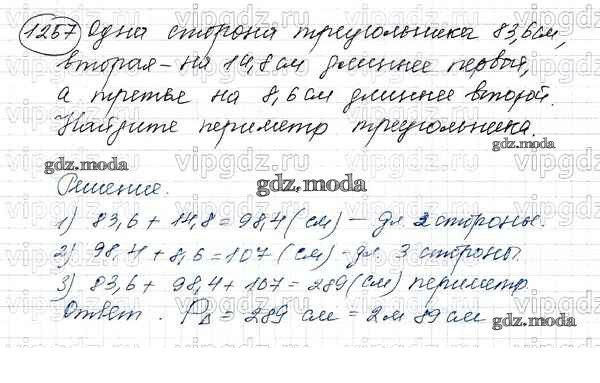 1257 Одна сторона треугольника 83,6 см,
вторая - на 14,8 см длиннее первой,
а третья на 8,6 см длиннее второй.
Найдите периметр треугольника.
gdz.moda
gdz.moda
Решение.
gdz.moda
1) 83,6 + 14,8 = 98,4 (см) - дл 2 стороны.
2) 98,4 + 8,6 = 107 (см) - дл 3 стороны.
3) 83,6 + 98,4 + 107 = 289 (см) периметр
Ответ. P△ = 289 см = 2м 89 см
gdz.moda